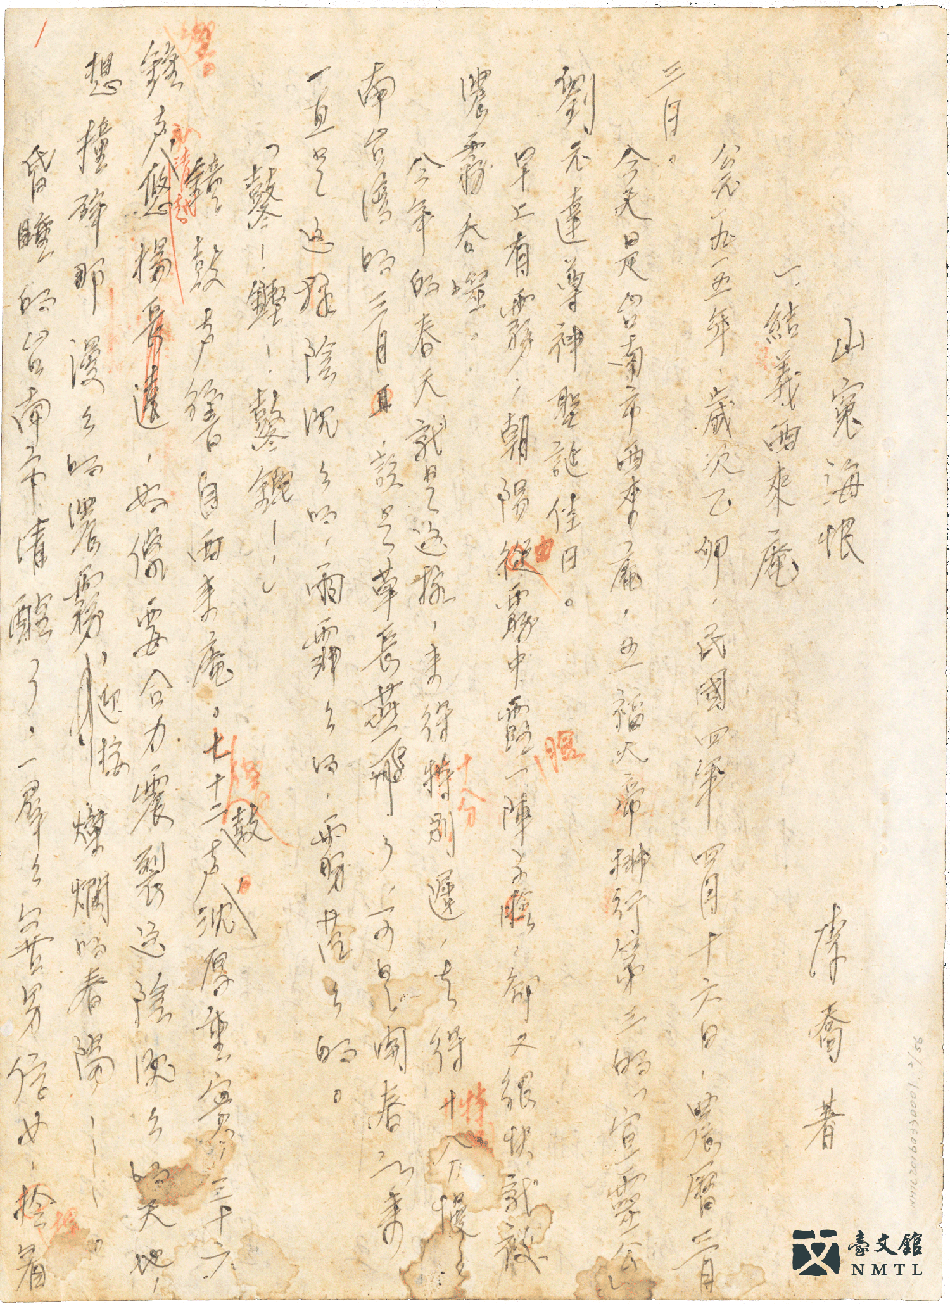 山冤海恨
李喬著
一、結義西來庵
公元一九一五年，歲次乙卯，民國四年四月十六日，農曆三月
三日。
今天是台南市西來庵，五福大帝排行第三的，宣靈公
劉元達尊神聖誕佳日。
早上有霧，朝陽從霧中露一陣子臉，卻又很快就被
濃霧吞噬。
今年的春天就是這樣，來得特別遲，走得十分慢；
南台灣的三月，該是草長燕飛了，可是開春以來
一直是這樣陰沉沉的，雨霏霏的，霧茫茫的。
「鼕！鏗！鼕鏗！！」
鐘鼓聲響自西來庵。七十二聲鼓，沉厚重實；三十六
鐘聲，悠揚長遠，好像要合力震裂這陰沉沉的天地，
想撞碎那漫漫的濃霧，迎接燦爛的春陽……。
昏睡的台南市清醒了。一羣羣善男信女，拾着
臺文館
NMTL